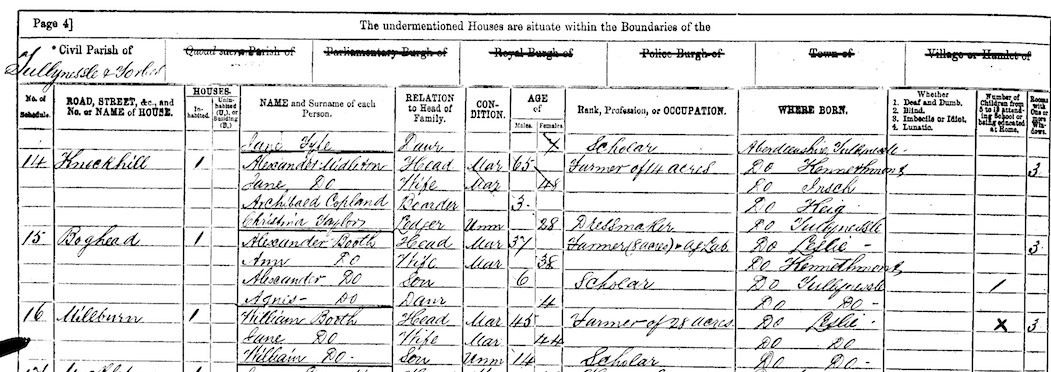 Page 4] The undermentioned Houses are situate within the Boundaries of the
* Civil Parish of Quoad sacra Parish of Parliamentary Burgh of Royal Burgh of Police Burgh of Town of Village or Hamlet of
Tullynessle & Forbes
No. of Schedule. ROAD, STREET, &c., and No. or NAME of HOUSE. HOUSES. In-habited Unin-habited (U.), or Building (B.) NAME and Surname of each Person. RELATION to Head of Family. CON-DITION. AGE of Males. Females. Rank, Profession, or OCCUPATION. WHERE BORN. Whether 1. Deaf and Dumb. 2. Blind. 3. Imbecile or Idiot. 4. Lunatic. Number of Children from 5 to 13 attending School or being educated at Home. Rooms with One or more Windows.
Jane Daur 7 Scholar Aberdeenshire, Tullynessle
14 Knockhill 1 Alexander Midleton Head Mar 65 Farmer of 14 acres Do Kennethmont 3
Jane Do Wife Mar 48 Do Insch
Archibald Copland Boarder 3 Do Keig
Christina Taylor Lodger Unm 28 Dressmaker Do Tullynessle
15 Boghead 1 Alexander Booth Head Mar 37 Farmer (8 acres) & Ag Lab Do Leslie 3
Ann Do Wife Mar 38 Do Kennethmont
Alexander Do Son 6 Scholar Do Tullynessle 1
Agnis Do Daur 4 Do Do
16 Millburn 1 William Booth Head Mar 45 Farmer of 28 acres Do Leslie X 3
Jane Do Wife Mar 44 Do Do
William Do Son Unm 14 Scholar Do Do